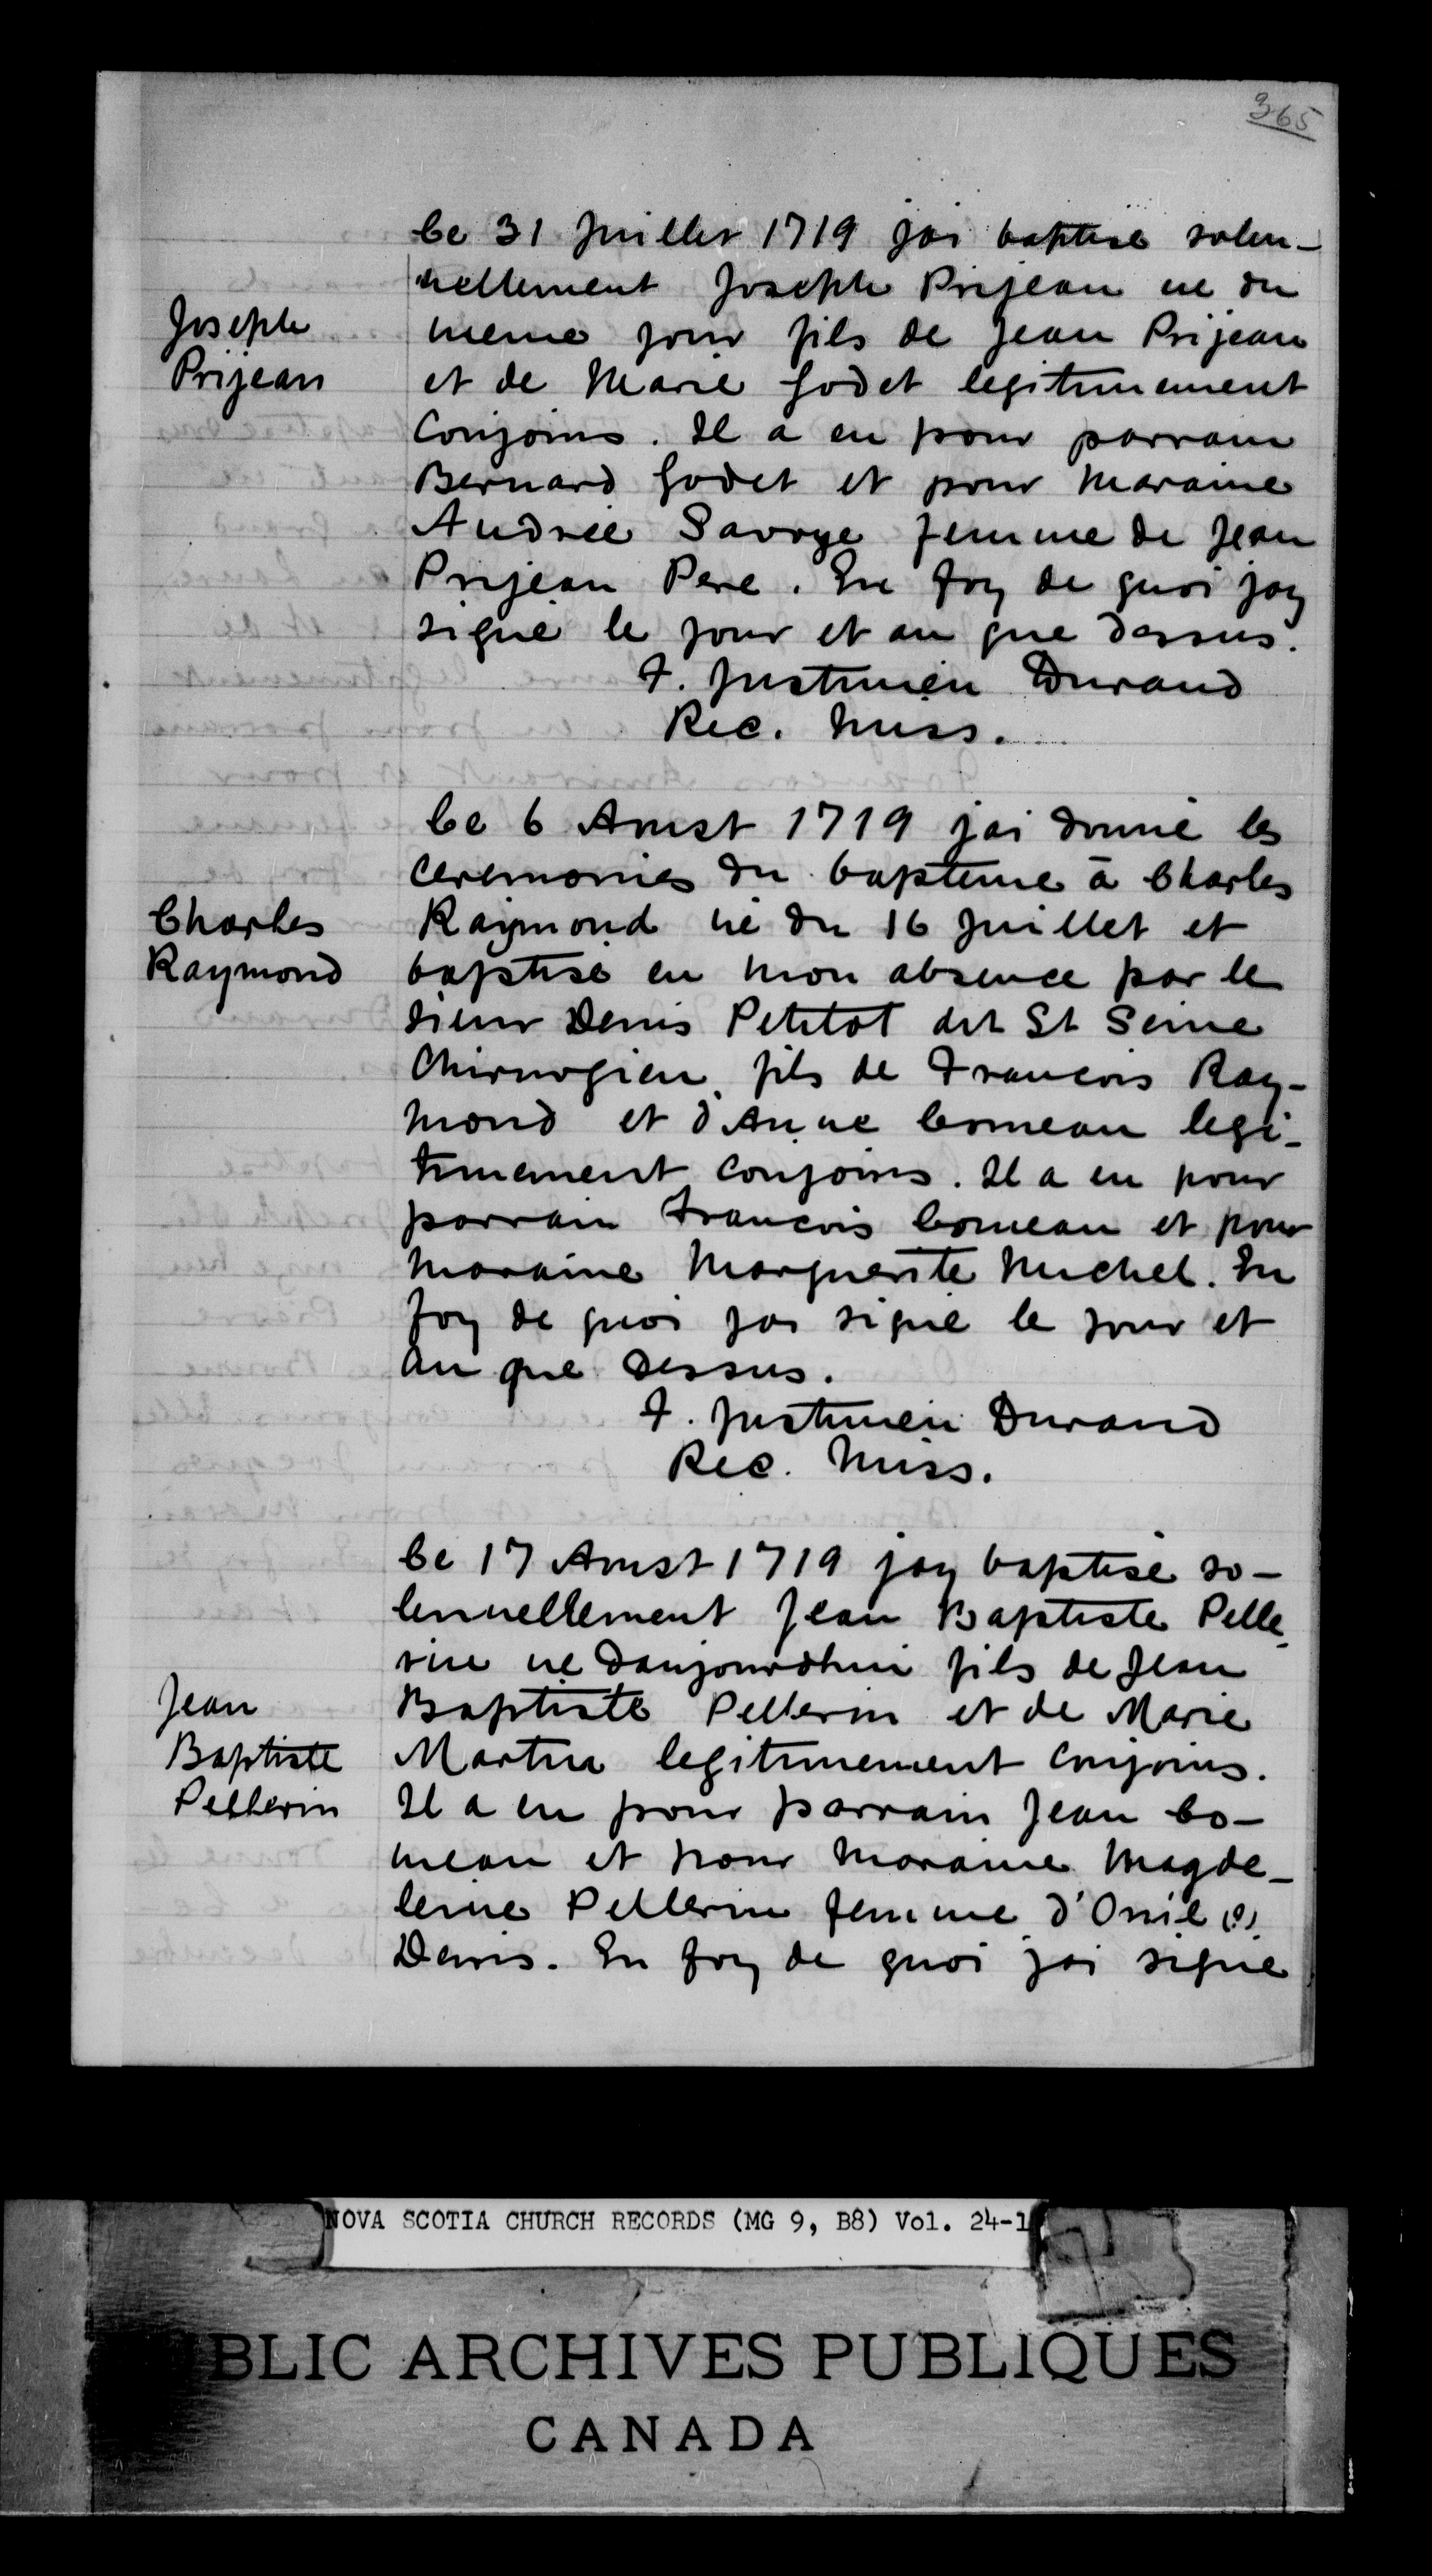 365
Ce 31 Juillet 1719 jai baptisé solen-
nellement Joseph Prijean né du
meme jour fils de Jean Prijean
et de Marie Godet legitimement
Conjoins. Il a eu pour parrain
Bernard Godet et pour maraine
Andrée Savoye femme de Jean
Prijean Pere. En foy de quoi jay
signé le jour et an que dessus.
F. Justinien Durand
Rec. Miss.
Joseph
Prijean
Ce 6 Aoust 1719 jai donné les
Ceremonies du bapteme à Charles
Raymond né du 16 Juillet et
baptisé en mon absence par le
sieur Denis Petitot dit St Seine
Chirurgien, fils de Francois Ray-
mond et d'Anne Comeau legi-
timement conjoins. Il a eu pour
parrain Francois Comeau et pour
maraine Marguerite Michel. En
foy de quoi jai signé le jour et
an que dessus.
F. Justinien Durand
Rec. Miss.
Charles
Raymond
Ce 17 Aoust 1719 jay baptisé so-
lennellement Jean Baptiste Pelle-
rin né daujourdhui fils de Jean
Baptiste Pellerin et de Marie
Martin legitimement conjoins.
Il a eu pour parrain Jean Co-
meau et pour maraine Magde-
leine Pellerin femme d'Onil (?)
Denis. En foy de quoi jai signé
Jean
Baptiste
Pellerin
NOVA SCOTIA CHURCH RECORDS (MG 9, B8) Vol. 24-1
BLIC ARCHIVES PUBLIQUES
CANADA